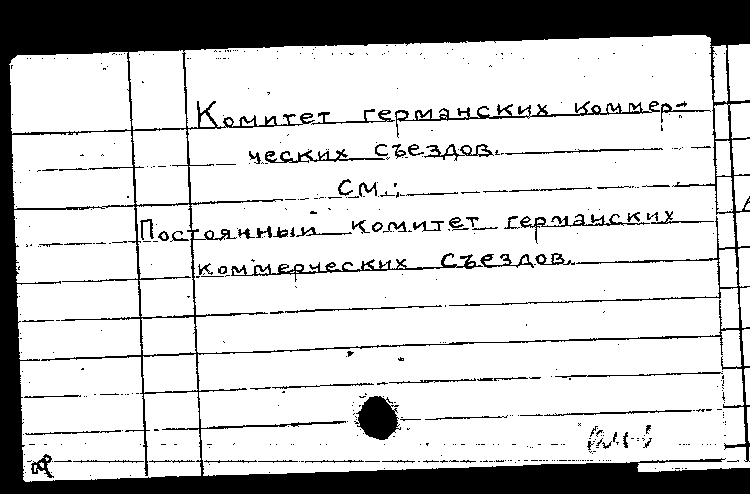 Комитет германских коммер-
ческих съездов.
см.:
Постоянный комитет германских
коммерческих съездов.